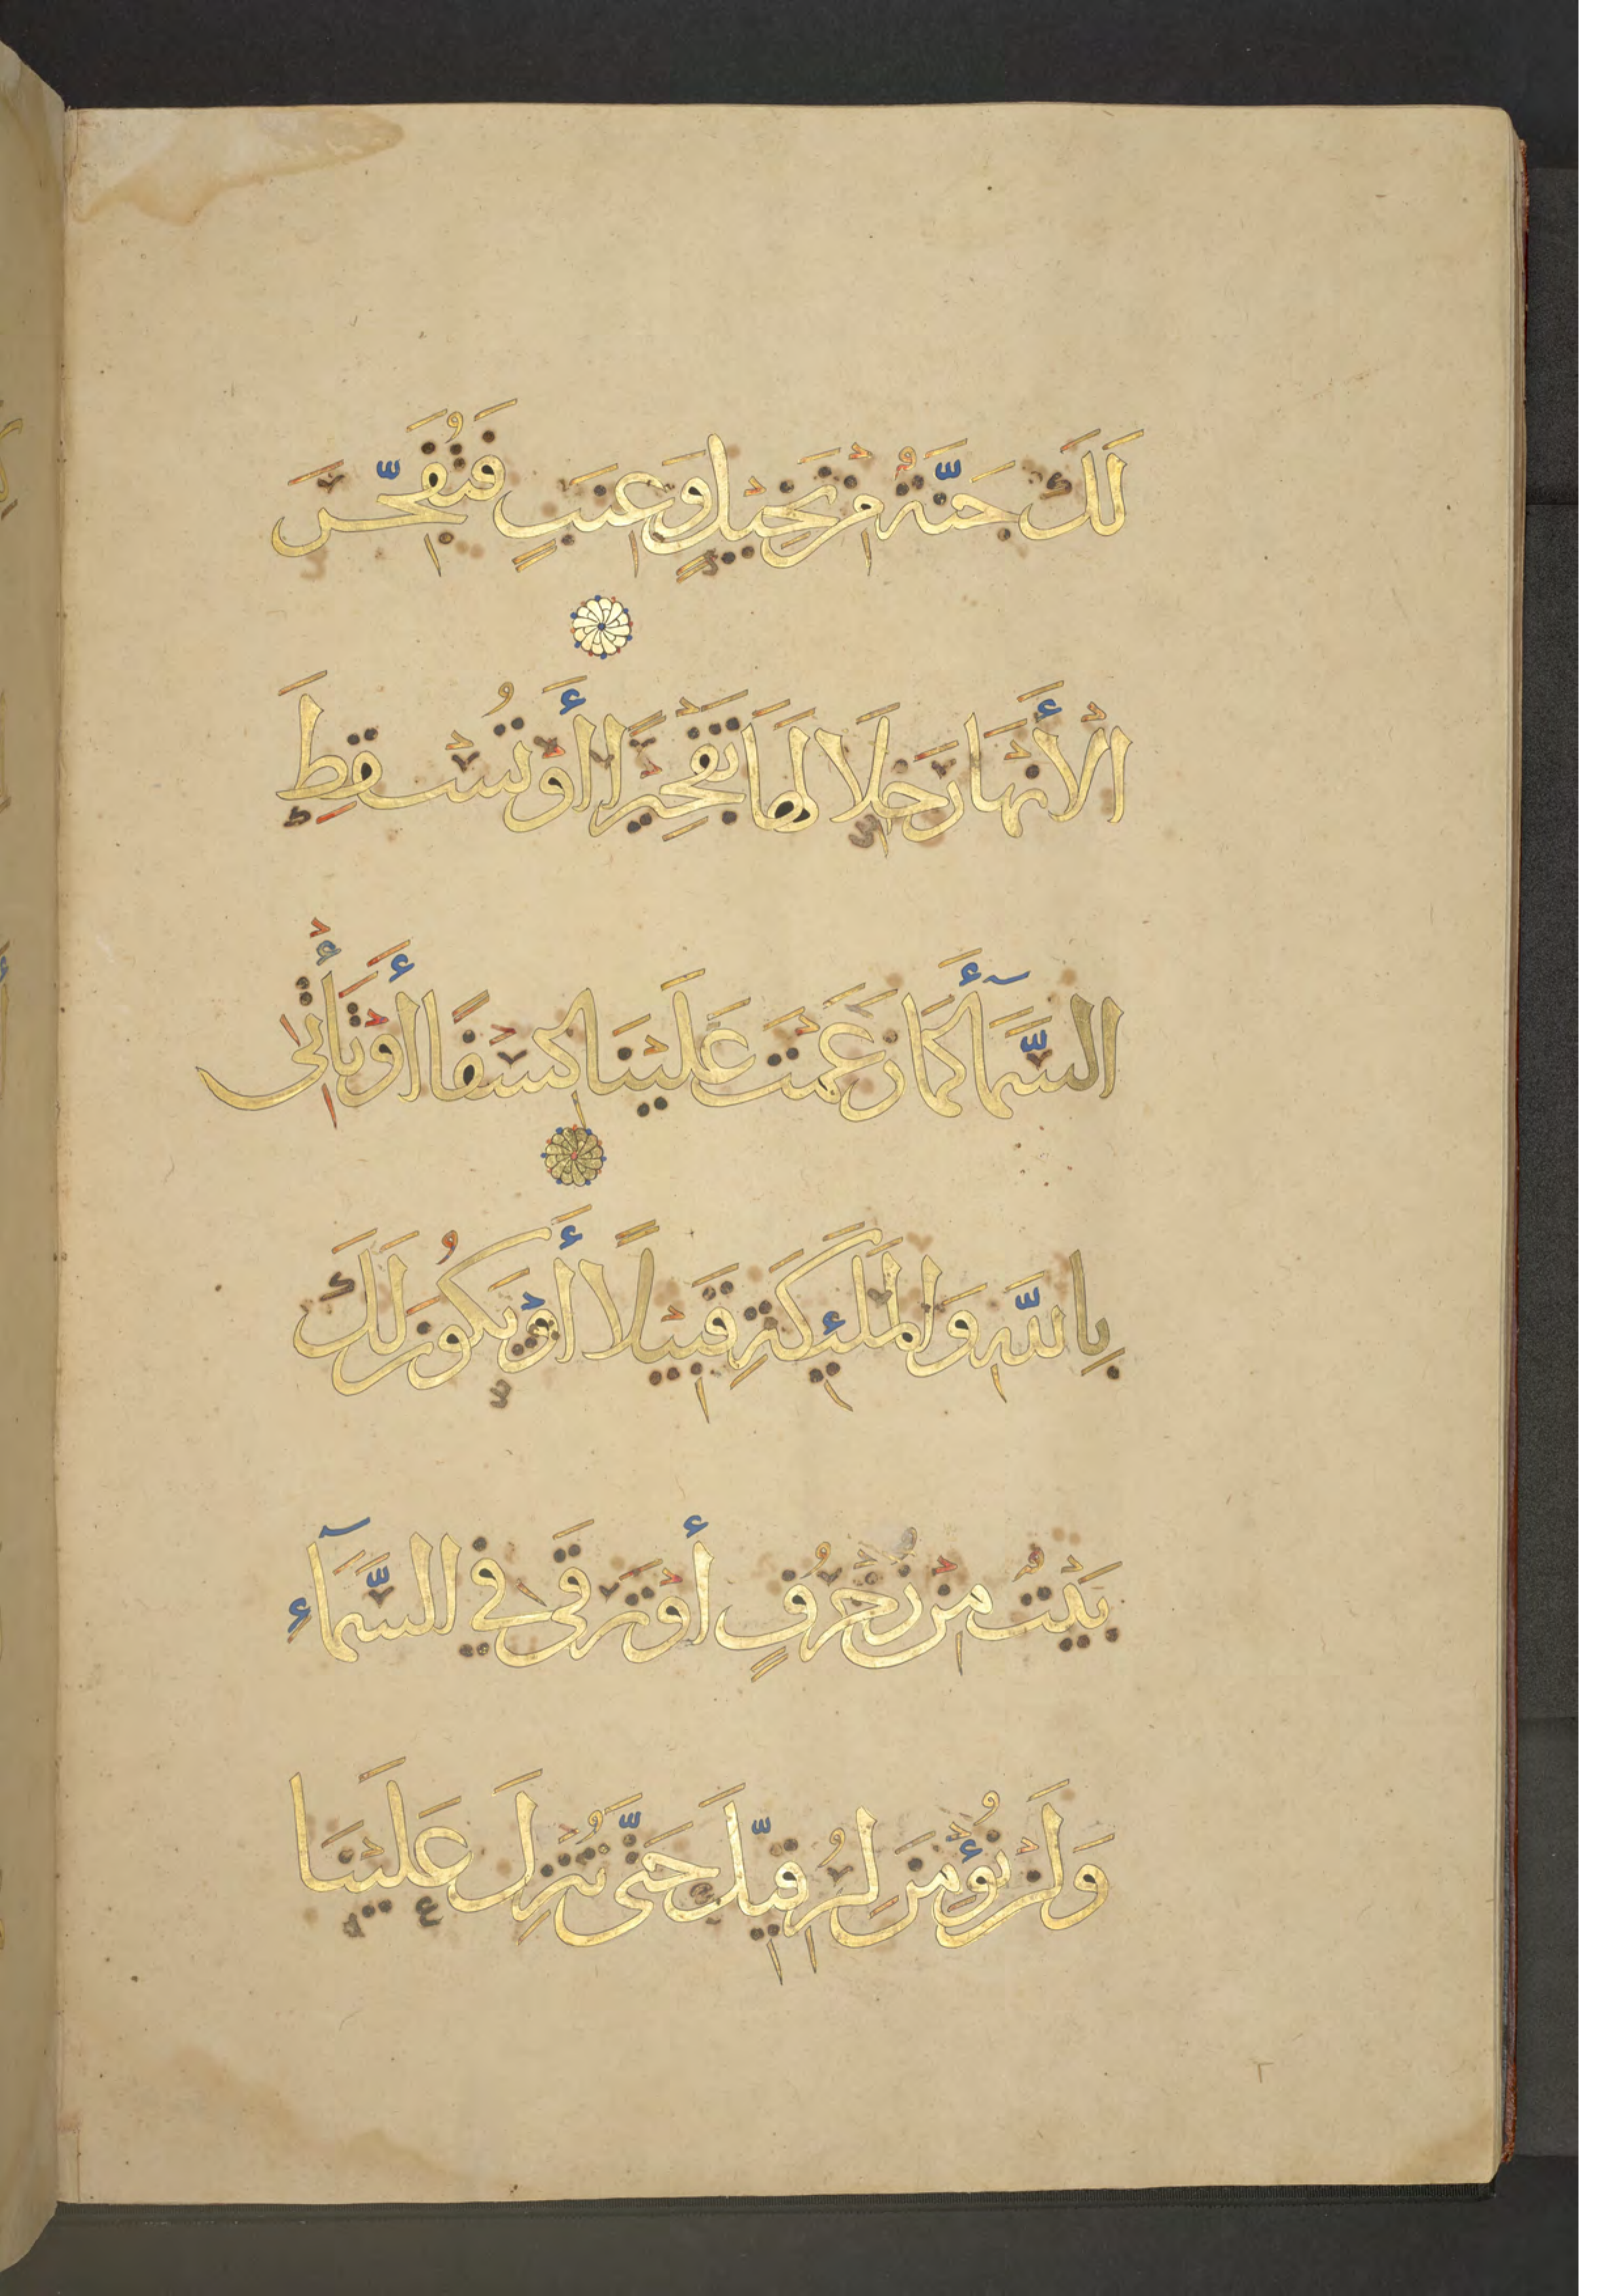 لَكَ جَنَّةٌ مِنْ نَخِيلٍ وَعِنَبٍ فَتُفَجِّرَ
الْأَنْهَارَ خِلَالَهَا تَفْجِيرًا أَوْ تُسْقِطَ
السَّمَآءَ كَمَا زَعَمْتَ عَلَيْنَا كِسْفًا أَوْ تَأْتِىَ
بِاللَّهِ وَالْمَلٰئِكَةِ قَبِيْلًا أَوْ يَكُونَ لَكَ
بَيْتٌ مِنْ زُخْرُفٍ أَوْ تَرْقَى فِي السَّمَآءِ
وَلَنْ نُؤْمِنَ لِرُقِيِّكَ حَتَّى تُنْزِلَ عَلَيْنَا